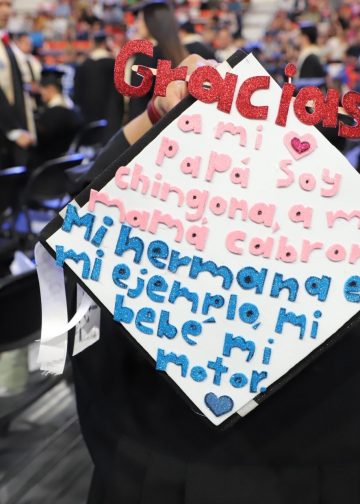 Gracias
a mi
Papá soy
chingona, a mi
mamá cabron
Mi hermana e
mi ejemplo, mi
bebé mi
motor.